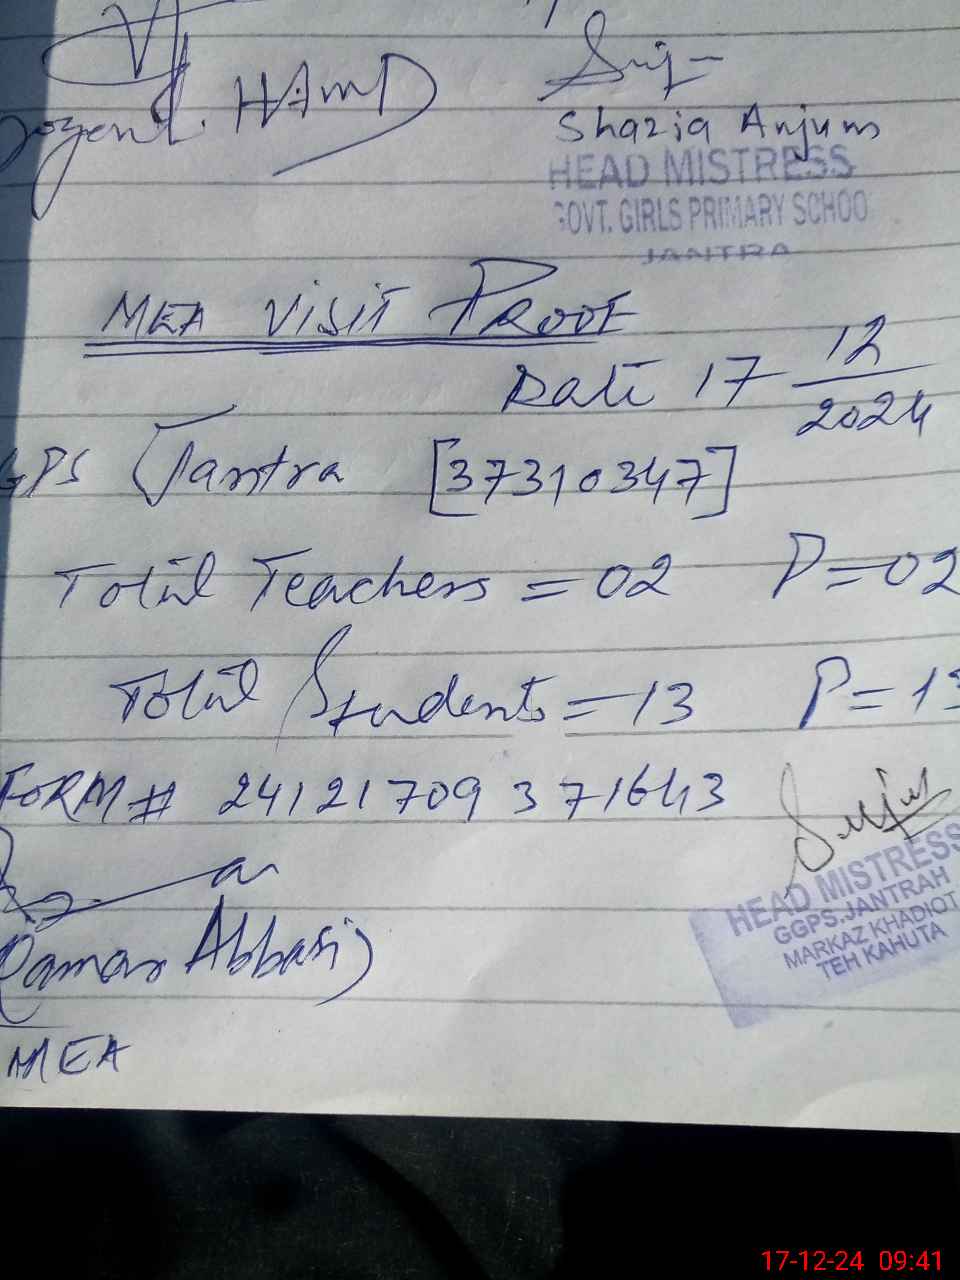 HAMD
Shazia Anjum
HEAD MISTRESS
GOVT. GIRLS PRIMARY SCHOO
JANTRA
MEA VISIT PROOF
Date 17 12/2024
GPS Jantra [37310347]
Total Teachers = 02 P=02
Total Students = 13 P=13
FORM # 24121709371643
Qamar Abbasi
MEA
HEAD MISTRESS
GGPS.JANTRAH
MARKAZ KHADIOT
TEH KAHUTA
17-12-24 09:41